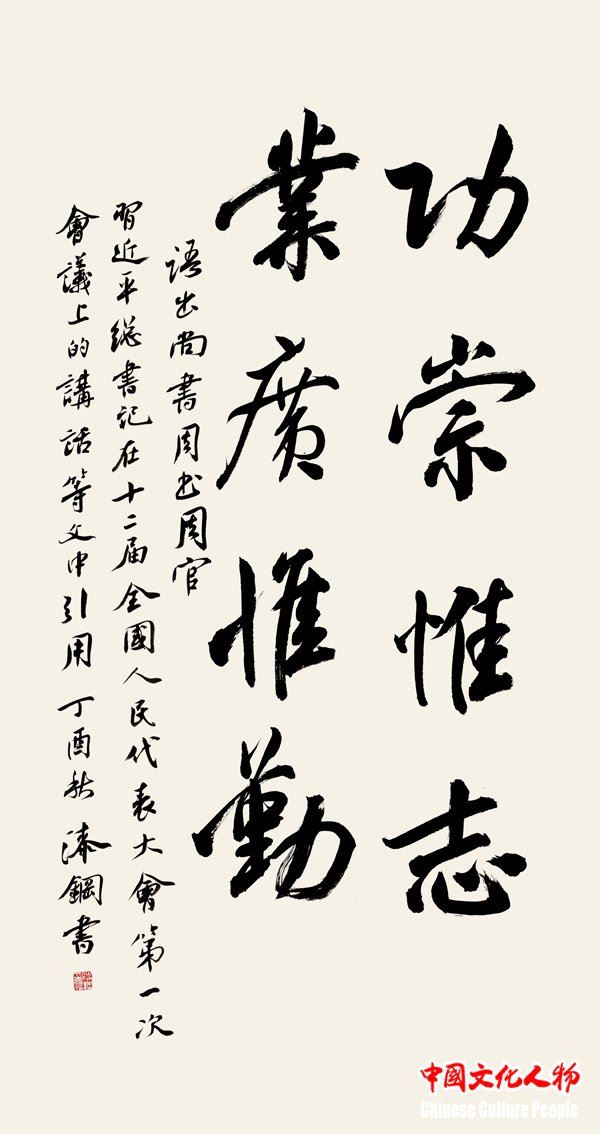 功崇惟志
業廣惟勤
語出尚書周书周官
習近平總書記在十二届全國人民代表大會第一次
會議上的講話等文中引用 丁酉秋 漆鋼書
中國文化人物
Chinese Culture People